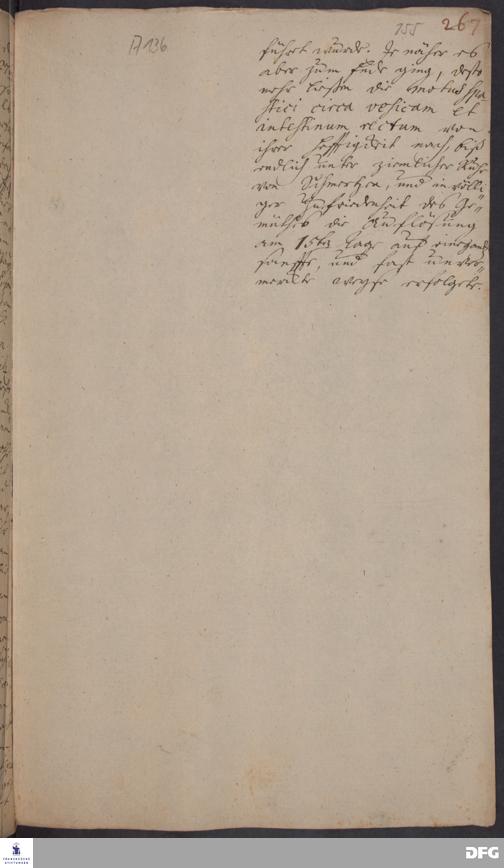 A 136
155 267
führet wurde. Je näher es
aber zum Ende ging, desto
mehr ließen die motus spa-
stici circa vesicam et
intestinum rectum von
ihrer Hefftigkeit nach biß
endlich unter ziemlicher Ruhe
von Schmertzen, und in völli-
ger Zufriedenheit des Ge-
müthes die Auflösung
am 15ten Tage auf eine gantz
sanffte, und fast unver-
merckte weyse erfolgete.
FRANCKESCHE
STIFTUNGEN
DFG